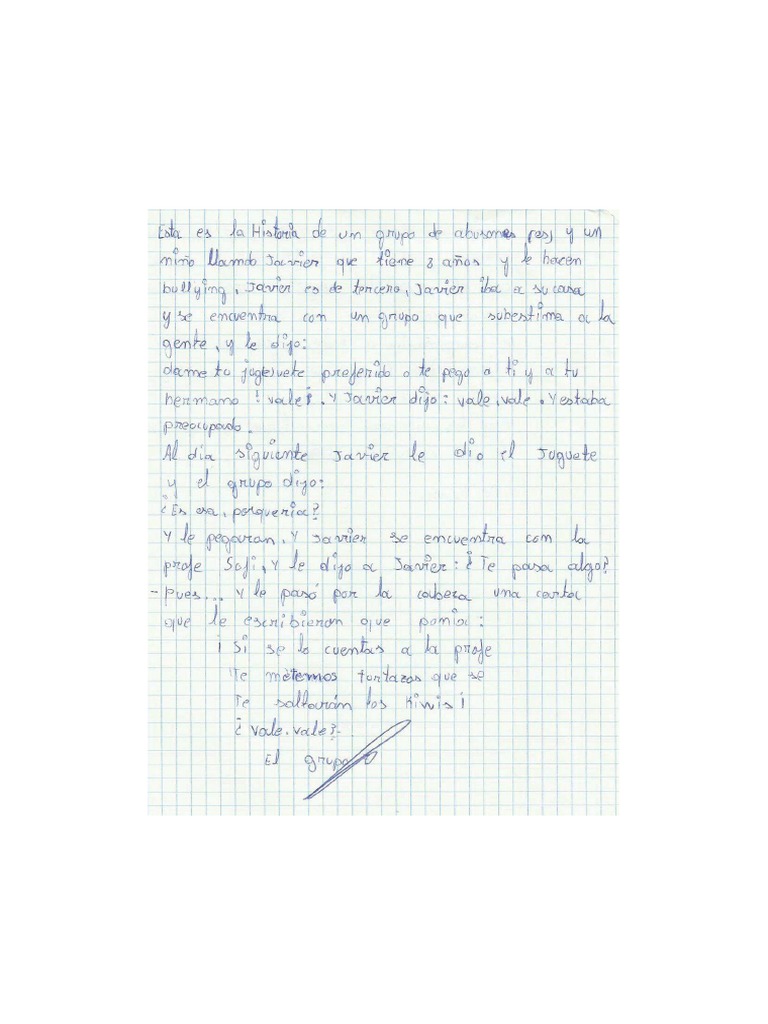 Esta es la Historia de un grupo de abusones y un
niño llamdo Javier que tiene 8 años y le hacen
bullying, Javier es de tercero, Javier iba a su casa
y se encuentra con un grupo que subestima a la
gente, y le dijo:
dame tu juguete preferido o te pego a ti y a tu
hermano ! vale ¡. Y Javier dijo: vale, vale. Y estaba
preocupado.
Al día siguiente Javier le dio el Juguete
y el grupo dijo:
¿Es esa, porqueria?
Y le pegaran, Y Javier se encuentra con la
profe Sofi, Y le dijo a Javier: ¿Te pasa algo?
- pues... Y le pasó por la cabeza una carta
que le escribieron que ponia:
¡ Si se lo cuentas a la profe
Te metemos tortazos que se
Te saltarán los Kiwis ¡
¿ vale. vale?
El grupo